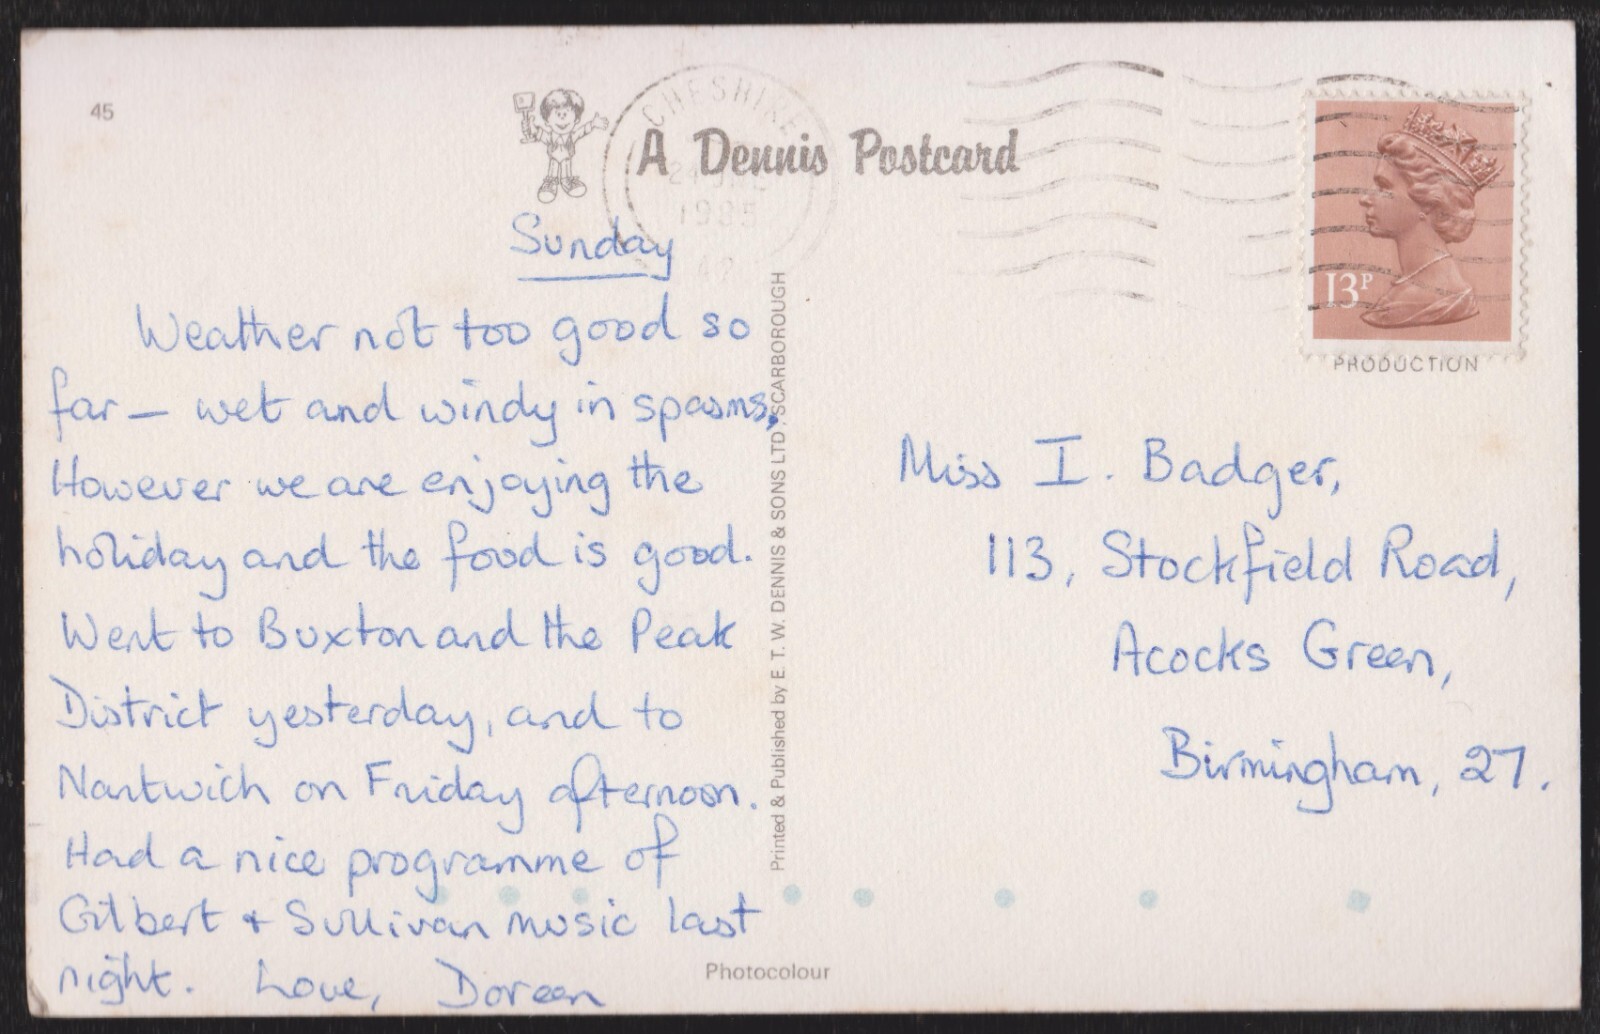 45
CHESHIRE
1985
A Dennis Postcard
13P
PRODUCTION
Sunday
Weather not too good so
far — wet and windy in spasms.
However we are enjoying the
holiday and the food is good.
Went to Buxton and the Peak
District yesterday, and to
Nantwich on Friday afternoon.
Had a nice programme of
Gilbert + Sullivan music last
night. Love, Doreen
Printed & Published by E. T. W. DENNIS & SONS LTD., SCARBOROUGH
Miss I. Badger,
113, Stockfield Road,
Acocks Green,
Birmingham, 27.
Photocolour